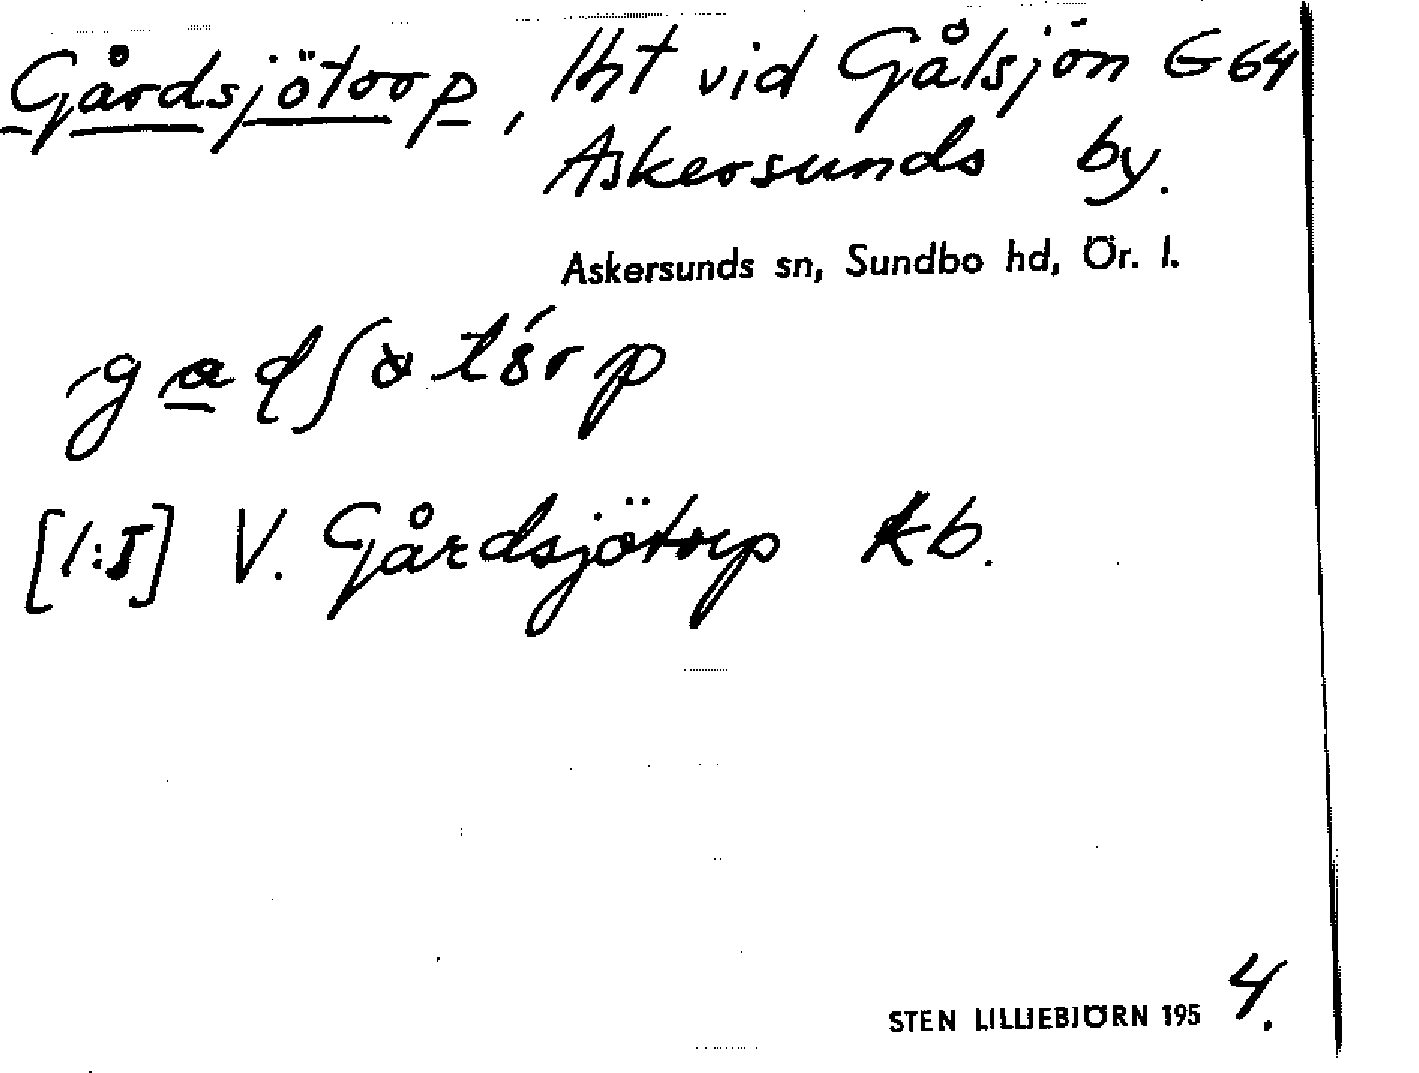 Gårdsjötorp, lht vid Gålsjön G64
Askersunds by.
Askersunds sn, Sundbo hd, Ör. l.
[1:5] V. Gårdsjötorp kb.
STEN LILLIEBJÖRN 1954.